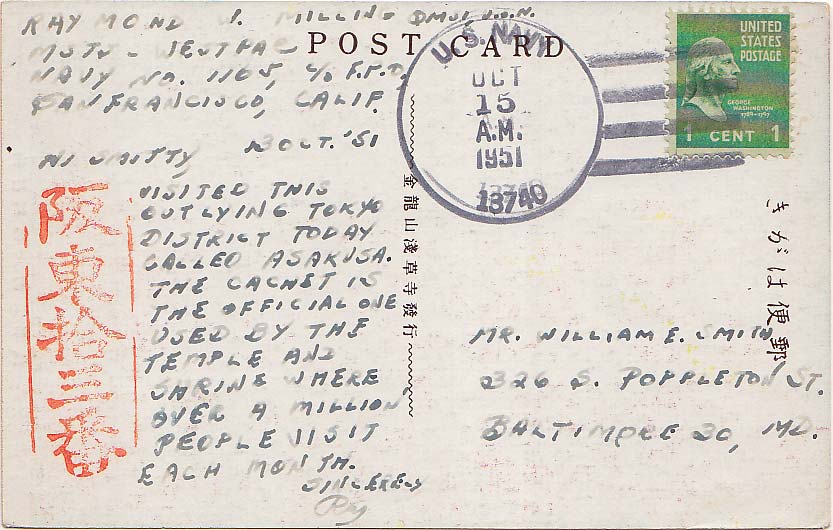 RAYMOND W. MILLING DMSI U.S.N.
MSTS - WESTPAC
NAVY NO. 1165, c/o F.P.O.
SAN FRANCISCO, CALIF.
POST CARD
U.S. NAVY
OCT
15
A.M.
1951
13740
13740
UNITED
STATES
POSTAGE
GEORGE
WASHINGTON
1789-1797
1 CENT 1
13 OCT. '51
HI SMITTY
VISITED THIS
OUTLYING TOKYO
DISTRICT TODAY
CALLED ASAKUSA.
THE CACHET IS
THE OFFICIAL ONE
USED BY THE
TEMPLE AND
SHRINE WHERE
OVER A MILLION
PEOPLE VISIT
EACH MONTH.
SINCERELY
Ray
阪東拾三番
金龍山淺草寺發行
きがは便郵
MR. WILLIAM E. SMITH,
326 S. POPPLETON ST.
BALTIMORE 30, MD.